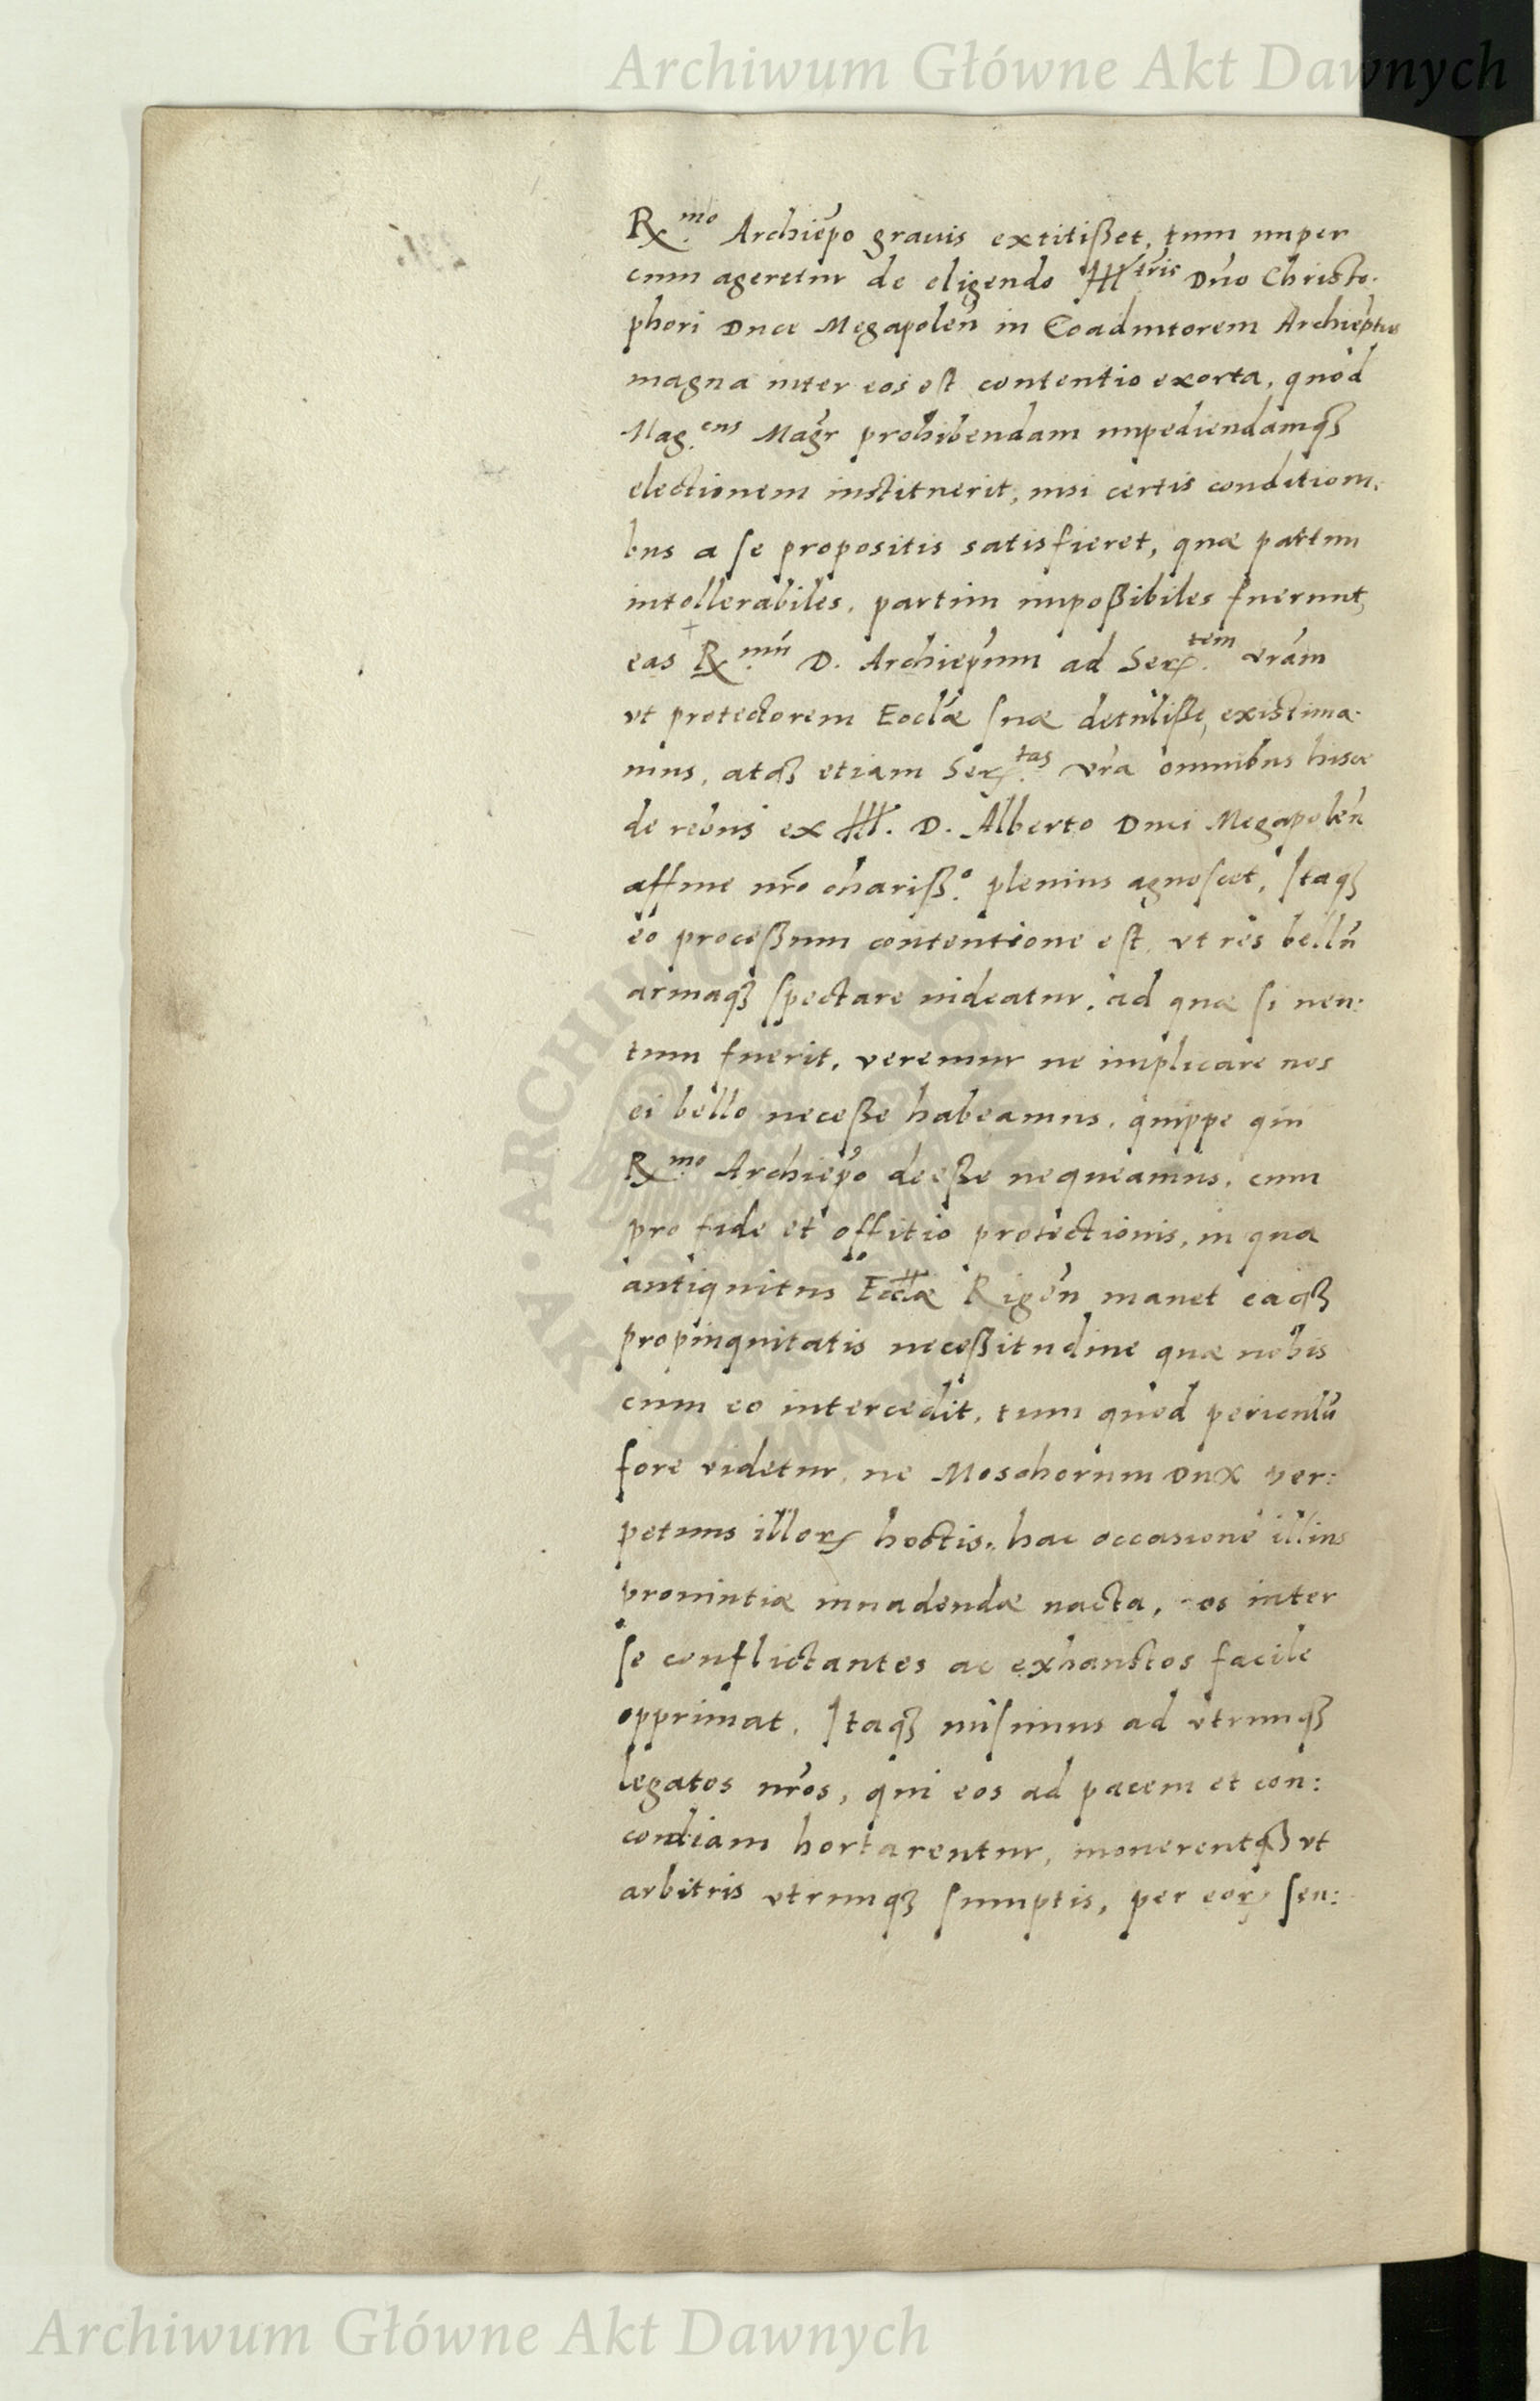 Archiwum Główne Akt Dawnych
R.mo Archiep̃o grauis extitißet, tum nuper
cum ageretur de eligendo Ill.tris Dño Christo-
phori Duce Megapoleñ in Coadiutorem Archiep̃tus
magna inter eos est contentio exorta, quòd
Mag.cus Mag̃r prohibendam impediendamq₃
electionem instituerit, nisi certis conditioni-
bus a se propositis satisfieret, quæ partim
intollerabiles, partim impoßibiles fuerunt,
eas R.mũ D. Archiep̃um ad Ser.tem vr̃am
vt protectorem Eccl̃æ suæ detuliße, existima-
mus, atq₃ etiam Ser.tas vr̃a omnibus hisce
de rebus ex Ill. D. Alberto Duci Megapoleñ
affine nr̃o chariß.o plenius agnoscet, Itaq₃
eò proceßum contentione est, vt res bellũ
armaq₃ spectare uideatur, ad quæ si uen:
tum fuerit, veremur ne implicare nos
ei bello neceße habeamus, quippe qui
R.mo Archiep̃o deeße nequeamus, cum
pro fide et offitio protectionis, in qua
antiquitus Eccl̃æ Rigeñ manet eaq₃
propinquitatis neceßitudine quæ nobis
cum eo intercedit, tum quod periculũ
fore videtur, ne Moschorum Dux per:
petuus illorꝝ hostis, hac occasione illius
prouintiæ inuadendæ nacta, eos inter
se conflictantes ac exhaustos facile
opprimat, Itaq₃ misimus ad vtrumq₃
legatos nr̃os, qui eos ad pacem et con:
cordiam hortarentur, monerentq₃ vt
arbitris vtrimq₃ sumptis, per eorꝝ sen:
ARCHIWUM GŁÓWNE AKT DAWNYCH
Archiwum Główne Akt Dawnych